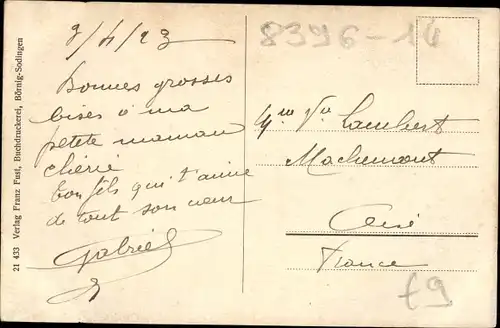 3/4/23
Bonnes grosses
bises à ma
petite maman
chérie
ton fils qui t'aime
de tout son cœur
Gabriel
21 433 Verlag Franz Fast, Buchdruckerei, Börnig-Sodingen
8396-14
Lambert
Machemont
Oise
France